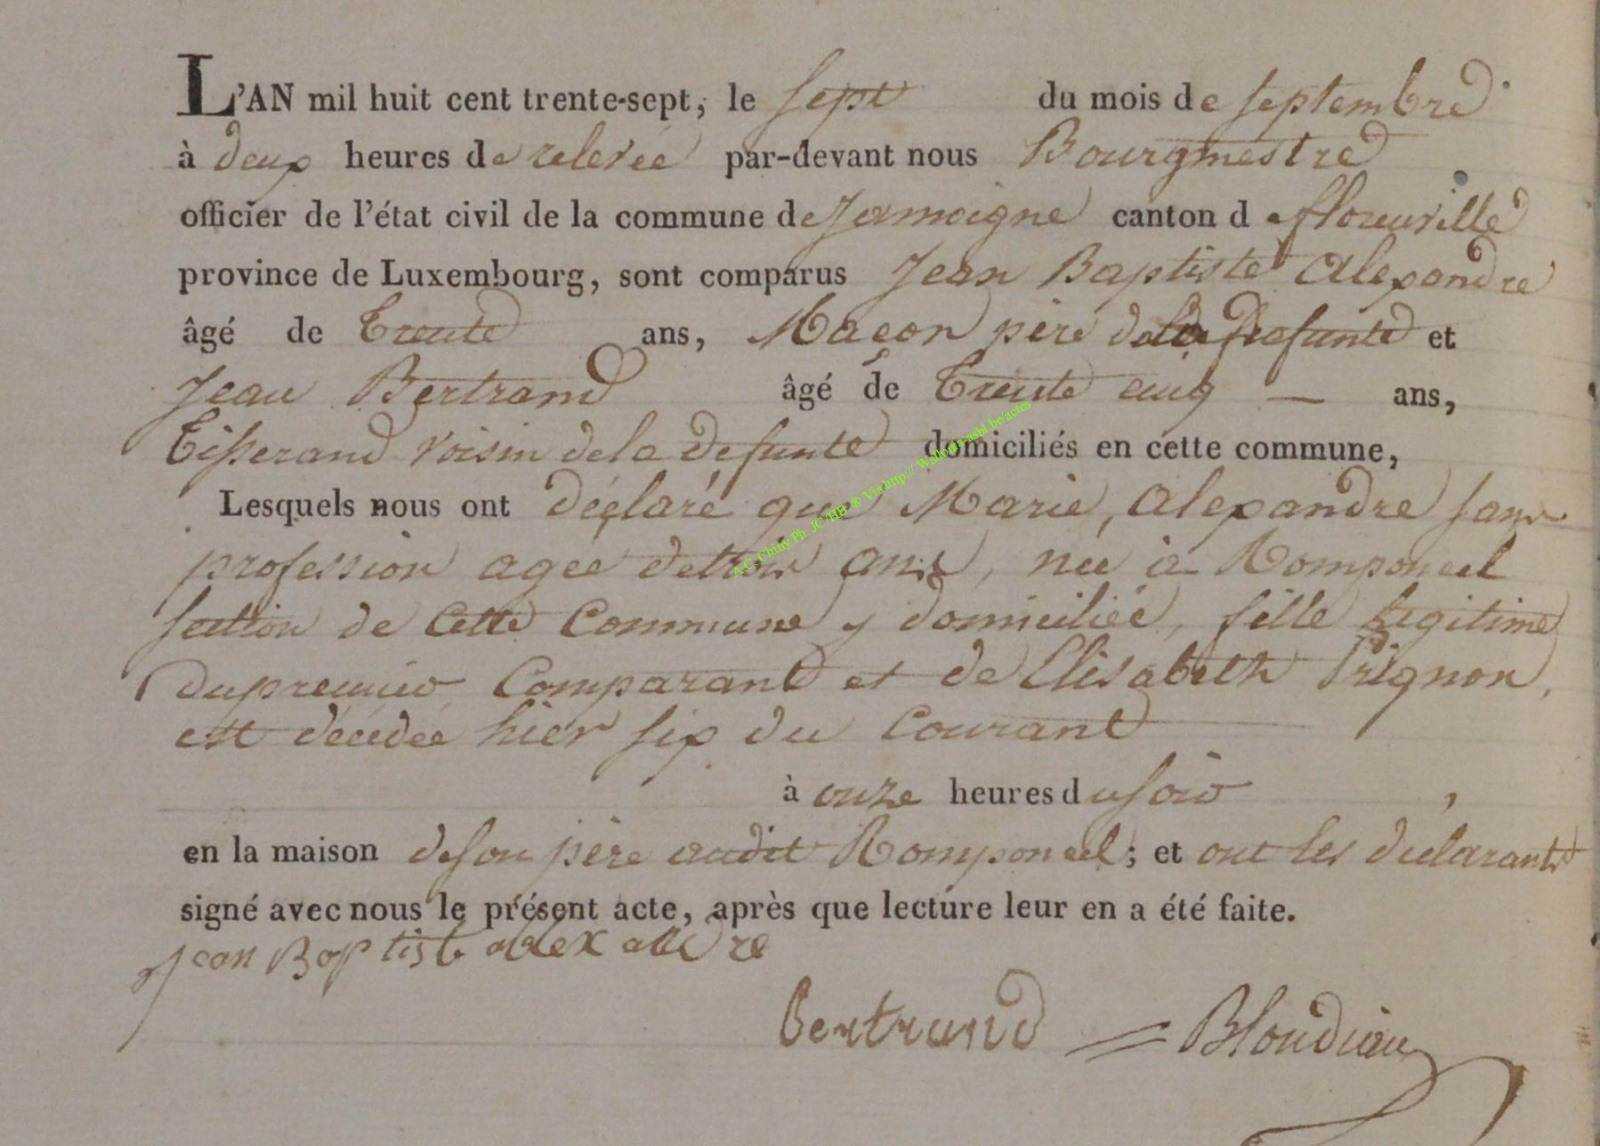 L'AN mil huit cent trente-sept, le sept du mois de septembre
à deux heures de relevée par-devant nous Bourgmestre
officier de l'état civil de la commune de Jamoigne canton de florenville
province de Luxembourg, sont comparus Jean Baptiste Alexandre
âgé de Trente ans, Macon père de la defunte et
Jean Bertrand âgé de Trente cinq — ans,
Tisserand voisin de la defunte domiciliés en cette commune,
Lesquels nous ont déclaré que Marie, Alexandre sans
profession agee de trois ans, née à Romponcel
section de cette Commune y domiciliée, fille legitime
du premier Comparant et de Elisabeth Prignon,
est décédée hier six du Courant
à onze heures du soir,
en la maison de son père audit Romponcel; et ont les déclarants
signé avec nous le présent acte, après que lecture leur en a été faite.
Jean Baptiste alexandre
Bertrand Blondiau